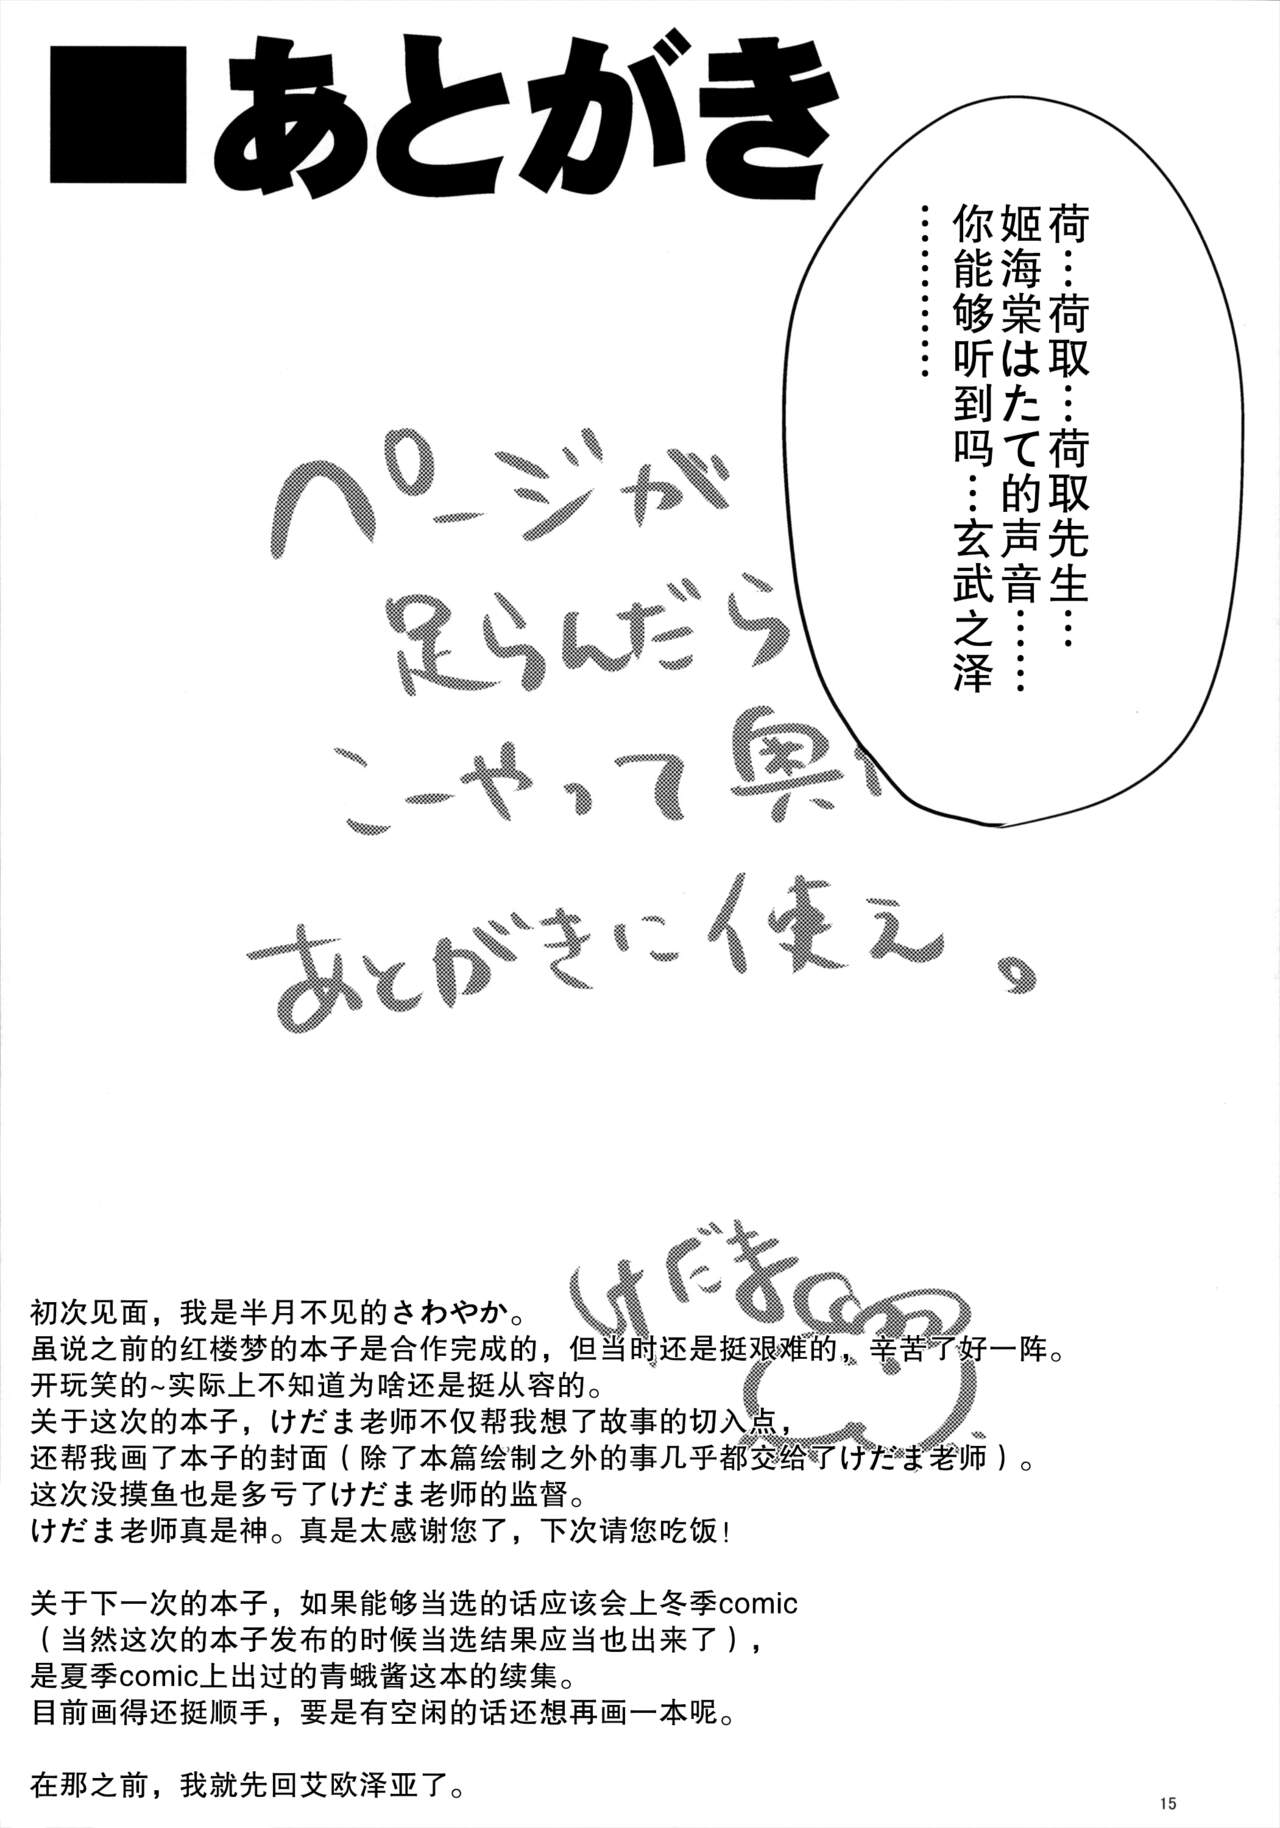 ■あとがき
荷…荷取…荷取先生…
姫海棠はたて的声音……
你能够听到吗…玄武之泽
…………
ページが
足らんだら
こーやって奥
あとがきに使え。
けだま
初次见面，我是半月不见的さわやか。
虽说之前的红楼梦的本子是合作完成的，但当时还是挺艰难的，辛苦了好一阵。
开玩笑的~实际上不知道为啥还是挺从容的。
关于这次的本子，けだま老师不仅帮我想了故事的切入点，
还帮我画了本子的封面（除了本篇绘制之外的事几乎都交给了けだま老师）。
这次没摸鱼也是多亏了けだま老师的监督。
けだま老师真是神。真是太感谢您了，下次请您吃饭！
关于下一次的本子，如果能够当选的话应该会上冬季comic
（当然这次的本子发布的时候当选结果应当也出来了），
是夏季comic上出过的青蛾酱这本的续集。
目前画得还挺顺手，要是有空闲的话还想再画一本呢。
在那之前，我就先回艾欧泽亚了。
15